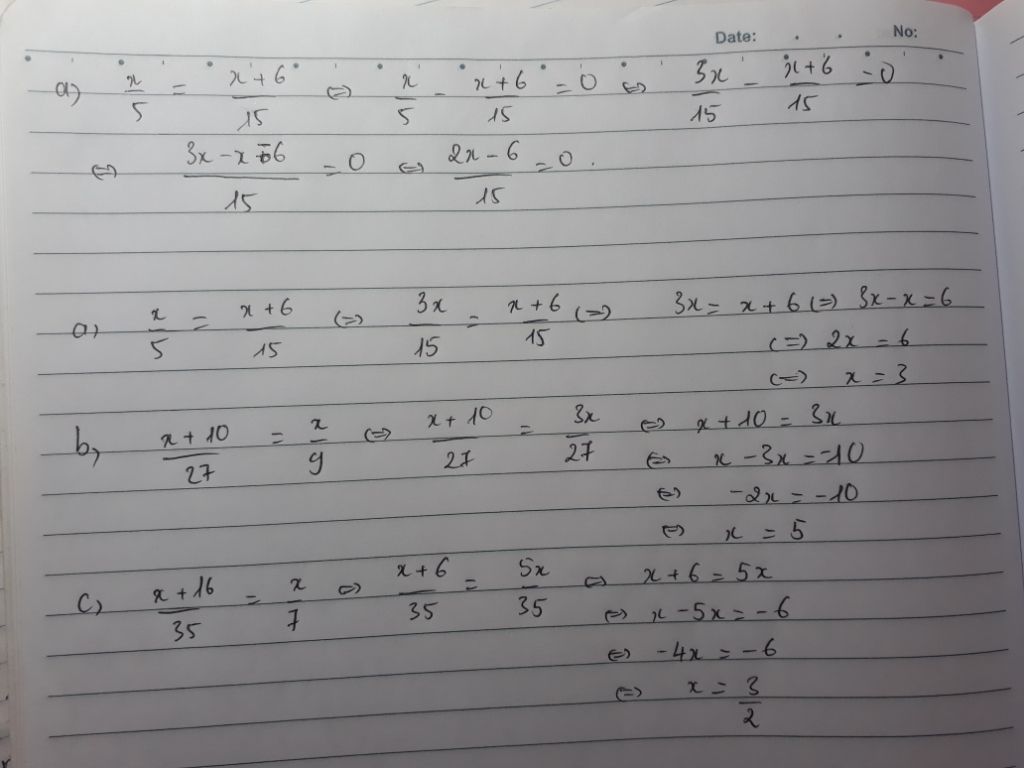 Date: No:
a) x/5 = (x+6)/15 ⇔ x/5 - (x+6)/15 = 0 ⇔ 3x/15 - (x+6)/15 = 0
⇔ (3x-x-6)/15 = 0 ⇔ (2x-6)/15 = 0.
a) x/5 = (x+6)/15 (=) 3x/15 = (x+6)/15 (=) 3x = x+6 (=) 3x-x=6
(=) 2x = 6
(=) x = 3
b) (x+10)/27 = x/9 ⇔ (x+10)/27 = 3x/27 ⇔ x+10 = 3x
⇔ x-3x = -10
⇔ -2x = -10
⇔ x = 5
c) (x+16)/35 = x/7 ⇔ (x+6)/35 = 5x/35 ⇔ x+6 = 5x
⇔ x-5x = -6
⇔ -4x = -6
⇔ x = 3/2